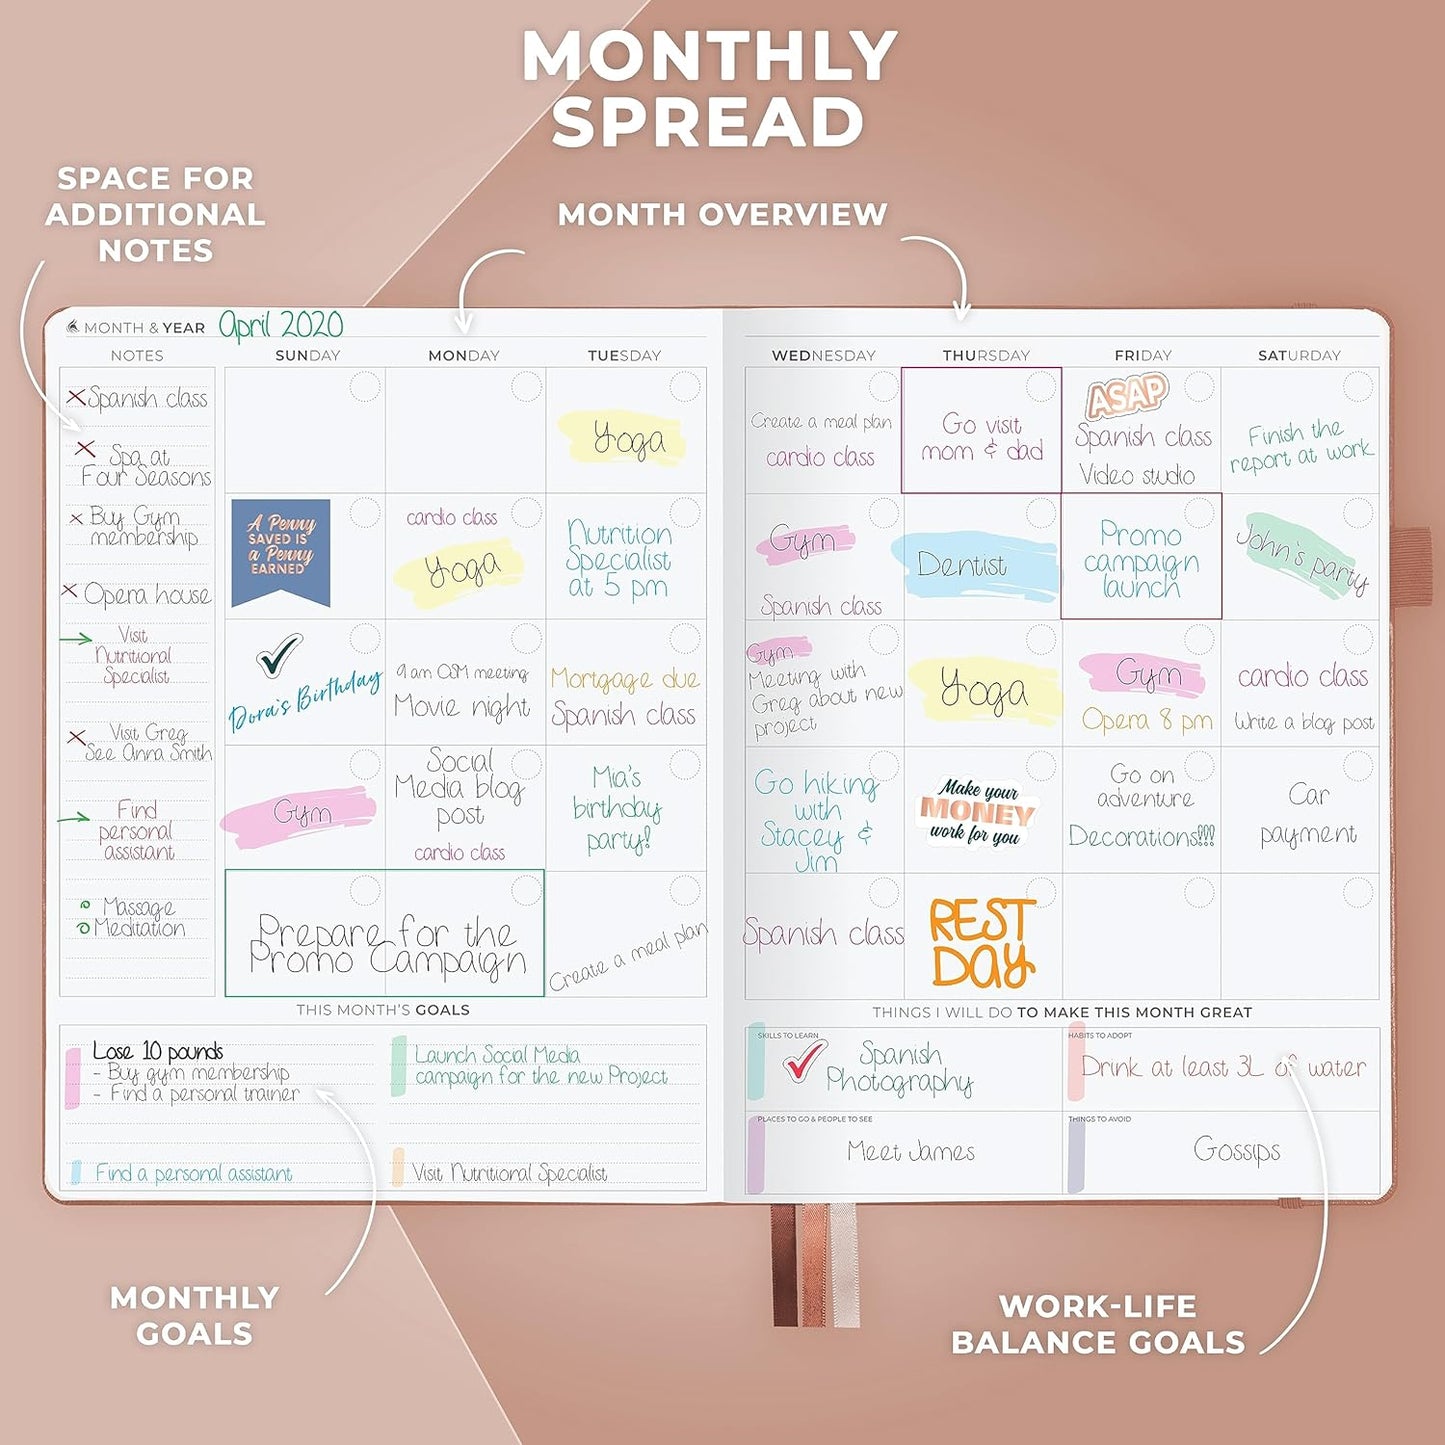 MONTHLY
SPREAD
SPACE FOR
ADDITIONAL
NOTES
MONTH OVERVIEW
MONTH & YEAR April 2020
NOTES
SUNDAY
MONDAY
TUESDAY
WEDNESDAY
THURSDAY
FRIDAY
SATURDAY
Spanish class
Spa at
Four Seasons
Buy Gym
membership
Opera house
Visit
Nutritional
Specialist
Visit Greg
See Anna Smith
Find
personal
assistant
Massage
Meditation
Yoga
Create a meal plan
cardio class
Go visit
mom & dad
ASAP
Spanish class
Video studio
Finish the
report at work
A Penny
SAVED IS
a Penny
EARNED
cardio class
Yoga
Nutrition
Specialist
at 5 pm
Gym
Spanish class
Dentist
Promo
campaign
launch
John's party
Dora's Birthday
9 am OSM meeting
Movie night
Mortgage due
Spanish class
Gym
Meeting with
Greg about new
project
Yoga
Gym
Opera 8 pm
cardio class
Write a blog post
Gym
Social
Media blog
post
cardio class
Mia's
birthday
party!
Go hiking
with
Stacey &
Jim
Make your
MONEY
work for you
Go on
adventure
Decorations!!!
Car
payment
Prepare for the
Promo Campaign
Create a meal plan
Spanish class
REST
DAY
THIS MONTH'S GOALS
Lose 10 pounds
- Buy gym membership
- Find a personal trainer
Launch Social Media
campaign for the new Project
Find a personal assistant
Visit Nutritional Specialist
THINGS I WILL DO TO MAKE THIS MONTH GREAT
SKILLS TO LEARN
Spanish
Photography
HABITS TO ADOPT
Drink at least 3L of water
PLACES TO GO & PEOPLE TO SEE
Meet James
THINGS TO AVOID
Gossips
MONTHLY
GOALS
WORK-LIFE
BALANCE GOALS